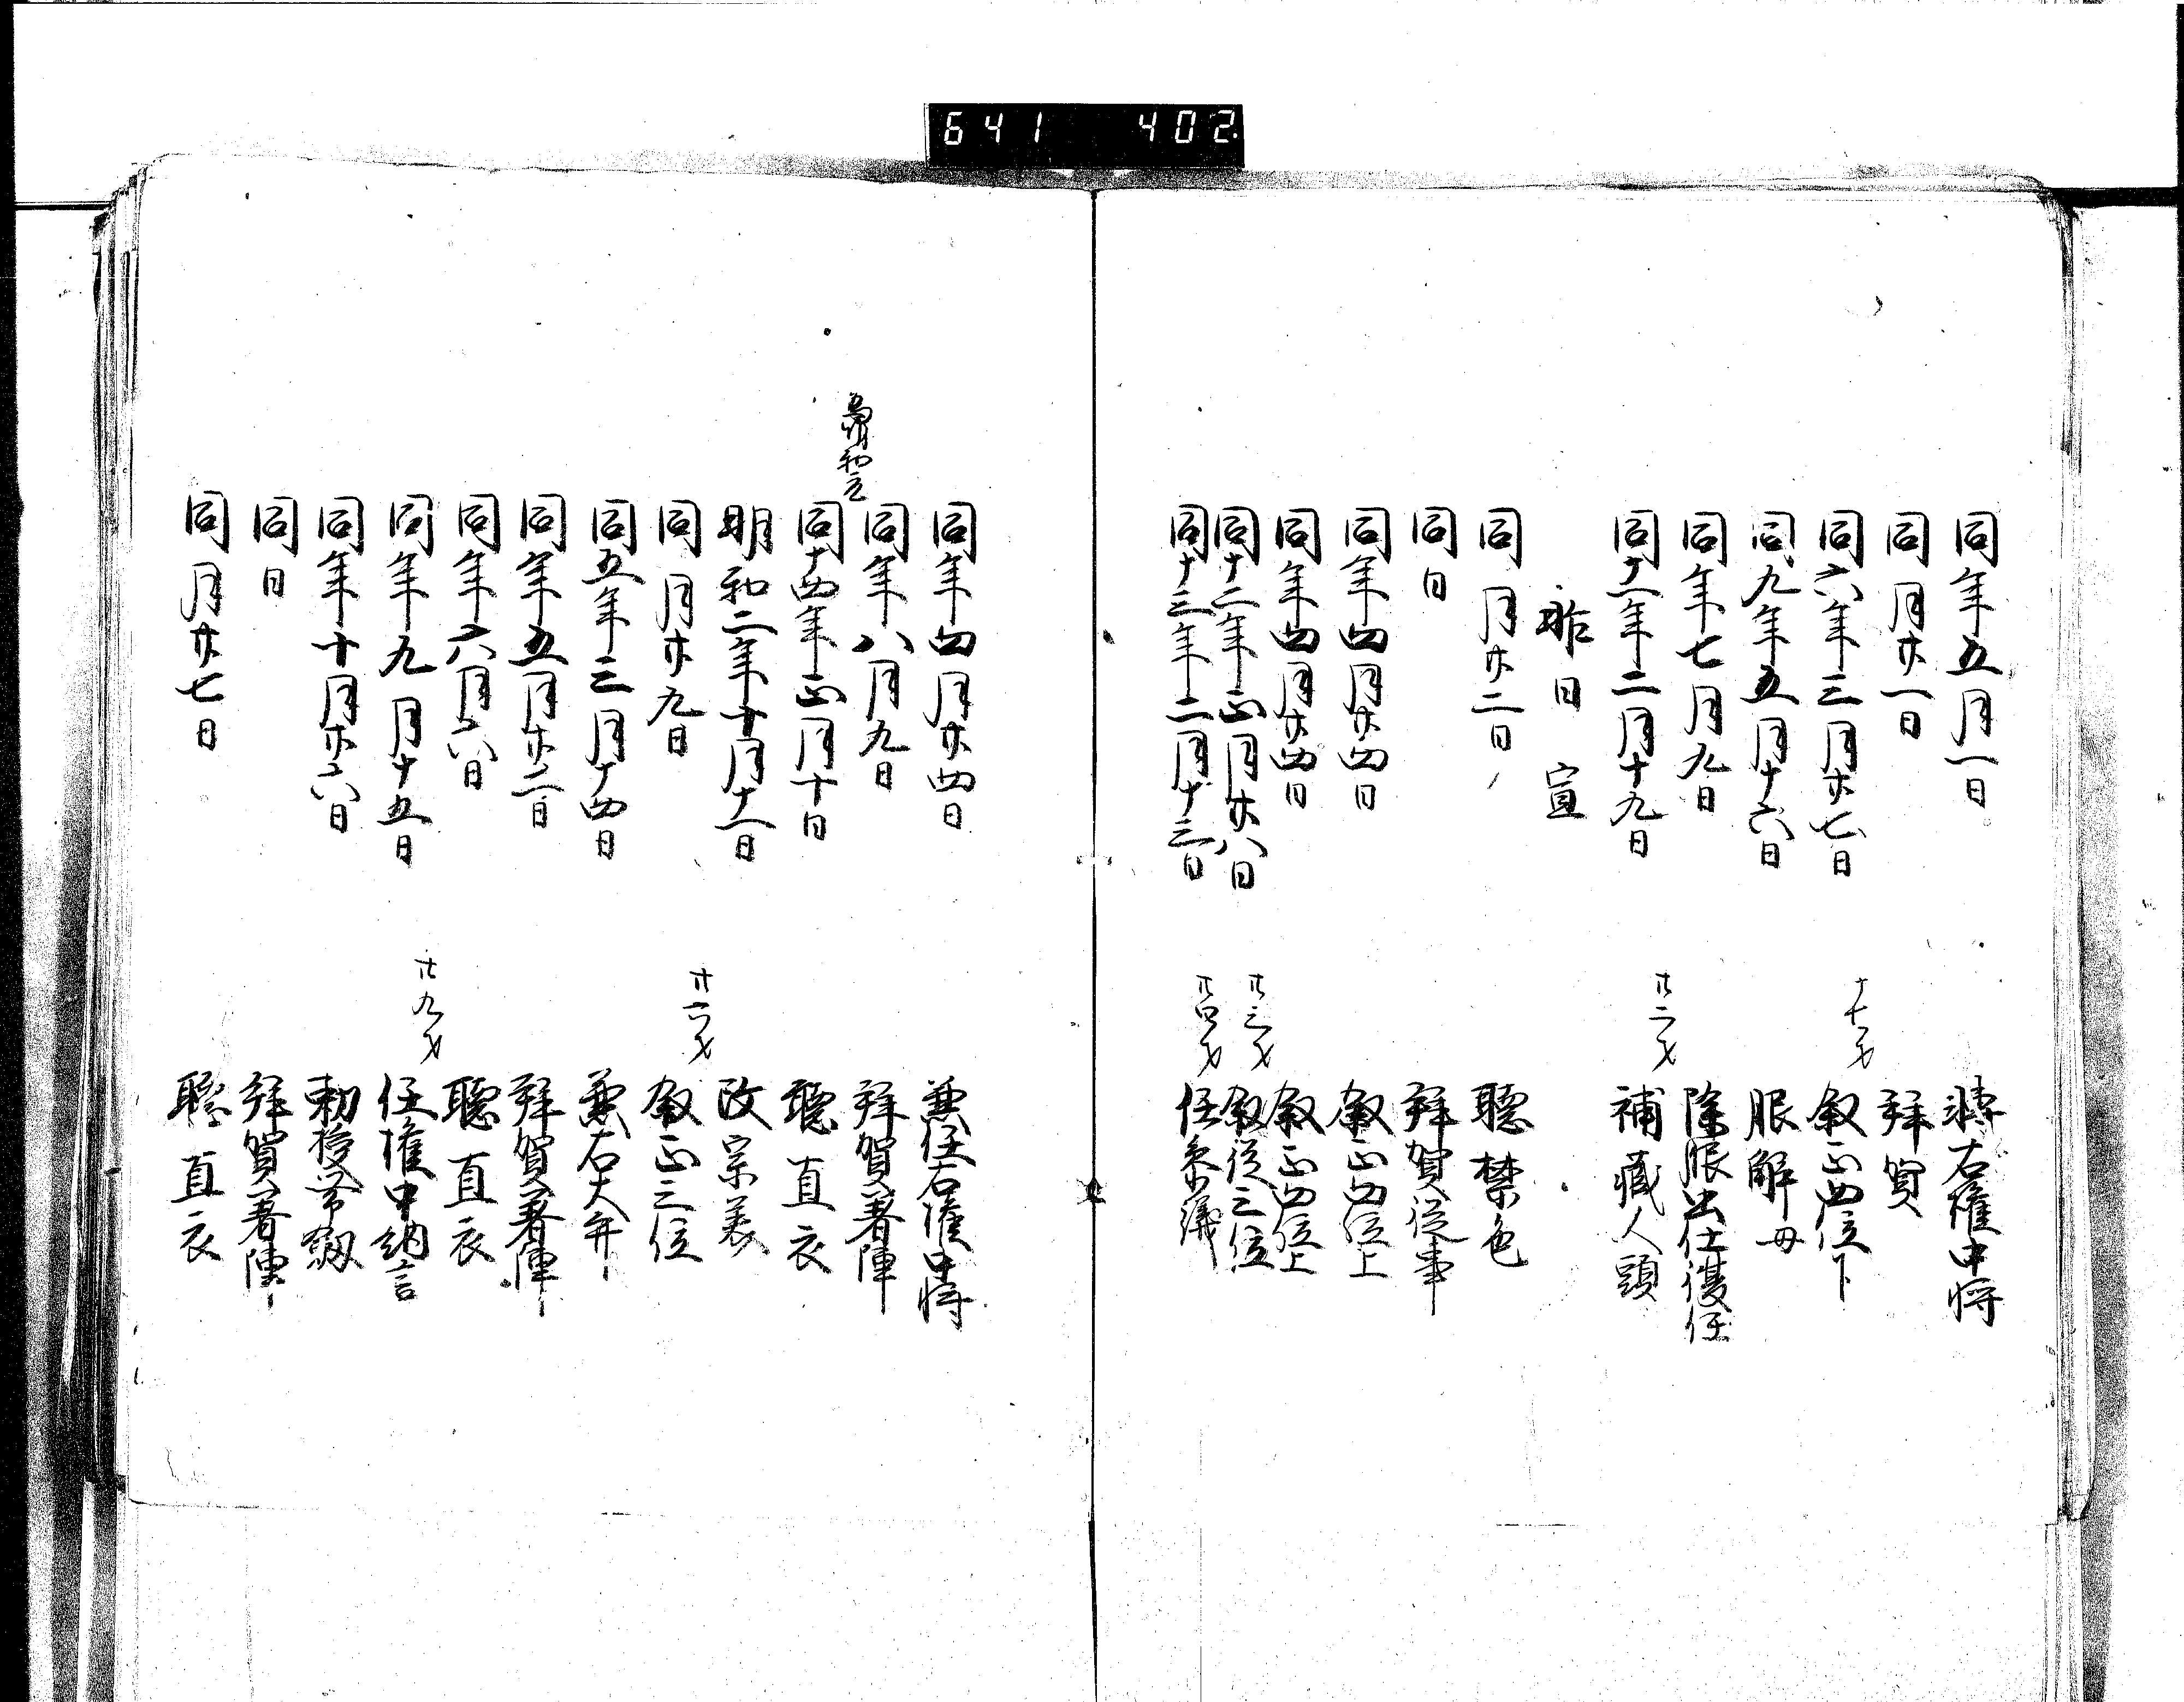 641 402
同年五月一日 転右権中将
同月廿一日 拝賀
同六年三月廿七日 十七才 叙正四位下
同九年五月十六日 服解母
同年七月九日 除服出仕復任
同十二年二月十九日 廿二才 補蔵人頭
昨日宣
同月廿二日 聴禁色
同日 拝賀従事
同年四月廿四日 叙正四位上
同年四月廿四日 叙正四位上
同十二年正月廿八日 廿三才 叙従三位
同十三年二月十三日 廿四才 任参議
同年四月廿四日 兼任右権中将
同年八月九日 拝賀著陣
同十四年正月十日 聴直衣
明和二年十月十二日 改宗美
同月廿九日 廿六才 叙正三位
同五年三月十四日 兼右大弁
同年五月廿二日 拝賀著陣
同年六月六日 聴直衣
同年九月十五日 廿九才 任権中納言
同年十月廿六日 勅授帯剱
同日 拝賀著陣
同月廿七日 聴直衣